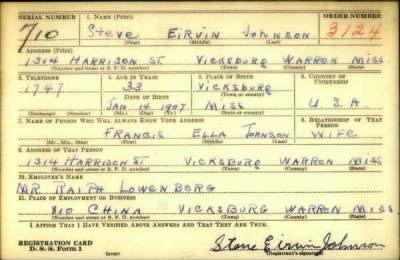 SERIAL NUMBER 1. NAME (Print) ORDER NUMBER
710 STEVE EIRVIN JOHNSON 3124
(First) (Middle) (Last)
2. ADDRESS (Print)
1314 HARRISON ST. VICKSBURG WARREN MISS
(Number and street or R. F. D. number) (Town) (County) (State)
3. TELEPHONE 4. AGE IN YEARS 5. PLACE OF BIRTH 6. COUNTRY OF CITIZENSHIP
1747 33 VICKSBURG
DATE OF BIRTH (Town or county)
JAN 14 1907 MISS U.S.A.
(Exchange) (Number) (Mo.) (Day) (Yr.) (State or country)
7. NAME OF PERSON WHO WILL ALWAYS KNOW YOUR ADDRESS 8. RELATIONSHIP OF THAT PERSON
FRANCIS ELLA JOHNSON WIFE
(Mr., Mrs., Miss) (First) (Middle) (Last)
9. ADDRESS OF THAT PERSON
1314 HARRISON ST VICKSBURG WARREN MISS
(Number and street or R. F. D. number) (Town) (County) (State)
10. EMPLOYER'S NAME
MR RALPH LOWENBERG
11. PLACE OF EMPLOYMENT OR BUSINESS
810 CHINA VICKSBURG WARREN MISS
(Number and street or R. F. D. number) (Town) (County) (State)
I AFFIRM THAT I HAVE VERIFIED ABOVE ANSWERS AND THAT THEY ARE TRUE.
REGISTRATION CARD
D. S. S. Form 1 Steve Eirvin Johnson
(Registrant's signature)